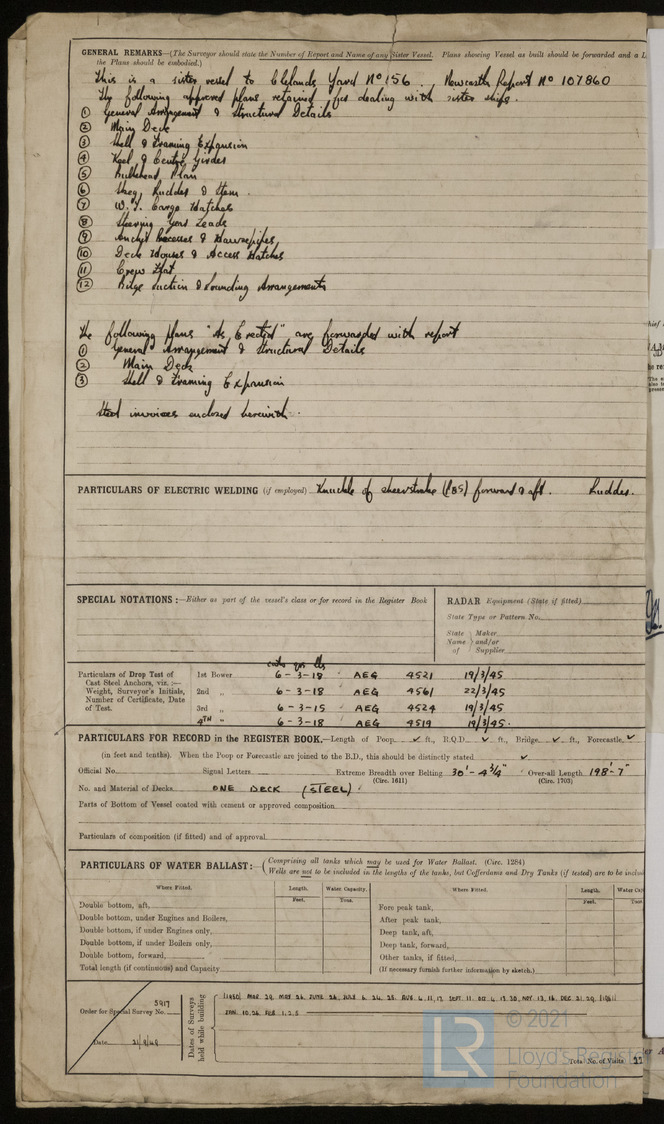 GENERAL REMARKS—(The Surveyor should state the Number of Report and Name of any Sister Vessel. Plans showing Vessel as built should be forwarded and a
the Plans should be embodied.)
This is a sister vessel to Clelands Yard No 156. Newcastle Report No 107860
The following approved plans retained for dealing with sister ships.
① General Arrangement & Structural Details
② Main Deck
③ Shell & Framing Expansion
④ Keel & Centre Girder
⑤ Bulkhead Plan
⑥ Skeg, Rudder & Stem.
⑦ W.T. Cargo Hatches
⑧ Steering Gear Leads
⑨ Anchor Recesses & Hawsepipes
⑩ Deck Houses & Access Hatches
⑪ Crew Flat
⑫ Bilge Suction & Sounding Arrangements
The following plans "As Erected" are forwarded with report
① General Arrangement & Structural Details
② Main Deck
③ Shell & Framing Expansion
Steel invoices enclosed herewith.
PARTICULARS OF ELECTRIC WELDING (if employed) Knuckle of sheerstrake (P&S) forward & aft. Rudder.
SPECIAL NOTATIONS:—Either as part of the vessel's class or for record in the Register Book
RADAR Equipment (State if fitted)
State Type or Pattern No.
State Maker
Name and/or
of Supplier
Particulars of Drop Test of
Cast Steel Anchors, viz. :—
Weight, Surveyor's Initials,
Number of Certificate, Date
of Test.
cwts qrs lbs
1st Bower 6-3-18 AEG 4521 19/3/45
2nd „ 6-3-18 AEG 4561 22/3/45
3rd „ 6-3-15 AEG 4524 19/3/45
4TH „ 6-3-18 AEG 4519 19/3/45.
PARTICULARS FOR RECORD in the REGISTER BOOK.—Length of Poop ✓ ft., R.Q.D. ✓ ft., Bridge ✓ ft., Forecastle ✓
(in feet and tenths). When the Poop or Forecastle are joined to the B.D., this should be distinctly stated ✓
Official No. Signal Letters Extreme Breadth over Belting 30'-4¾" Over-all Length 198'-7"
(Circ. 1611) (Circ. 1703)
No. and Material of Decks ONE DECK (STEEL)
Parts of Bottom of Vessel coated with cement or approved composition
Particulars of composition (if fitted) and of approval
PARTICULARS OF WATER BALLAST:— (Comprising all tanks which may be used for Water Ballast. (Circ. 1284)
(Wells are not to be included in the lengths of the tanks, but Cofferdams and Dry Tanks (if tested) are to be
Where Fitted. Length. Water Capacity. Where Fitted. Length.
Feet. Tons. Feet.
Double bottom, aft,
Double bottom, under Engines and Boilers,
Double bottom, if under Engines only,
Double bottom, if under Boilers only,
Double bottom, forward,
Total length (if continuous) and Capacity
Fore peak tank,
After peak tank,
Deep tank, aft,
Deep tank, forward,
Other tanks, if fitted,
(If necessary furnish further information by sketch.)
Order for Special Survey No. 5917
Date 21/9/49
Dates of Surveys
held while building
(1950) MAR 29. MAY 26. JUNE 26. JULY 6. 24. 25. AUG 4. 11. 17. SEPT. 11. OCT 4. 13. 20. NOV. 13. 16. DEC. 21. 29. (1951)
JAN. 10. 26. FEB. 1. 2. 5
Total No. of Visits 22
© 2021
LR
Lloyd's Register
Foundation